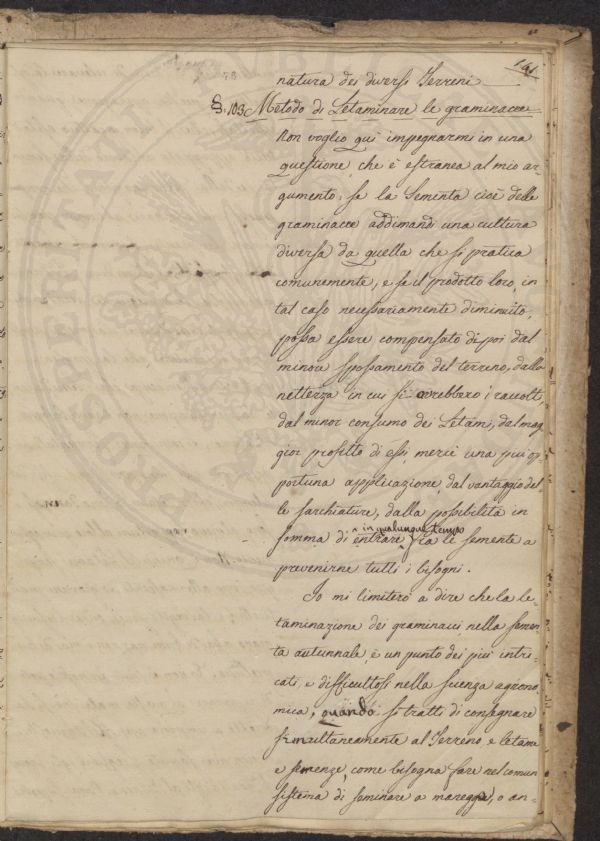 141
natura dei diversi Terreni
§. 103 Metodo di Letaminare le graminacee
Non voglio quì impegnarmi in una
questione, che è estranea al mio ar-
gumento, se la Sementa cioè delle
graminacee addimandi una cultura
diversa da quella che si pratica
comunemente, e se il prodotto loro, in
tal caso necessariamente diminuito,
possa essere compensato di poi dal
minore spossamento del terreno, dalla
nettezza in cui si avrebbero i raccolti,
dal minor consumo dei Letami, dal mag
gior profitto di essi, mercè una più op-
portuna applicazione, dal vantaggio del
le sarchiature, dalla possibilità in
somma di entrare in qualunque tempo fra le semente a
prevenirne tutti i bisogni.
Io mi limiterò a dire che la le-
taminazione dei graminacei nella semen-
ta autunnale, è un punto dei più intri-
cati, e difficultosi nella scienza agrono-
mica, quando si tratti di consegnare
simultaneamente al Terreno e letame
e semenze, come bisogna fare nel comun
sistema di seminare a maneggia, o an-